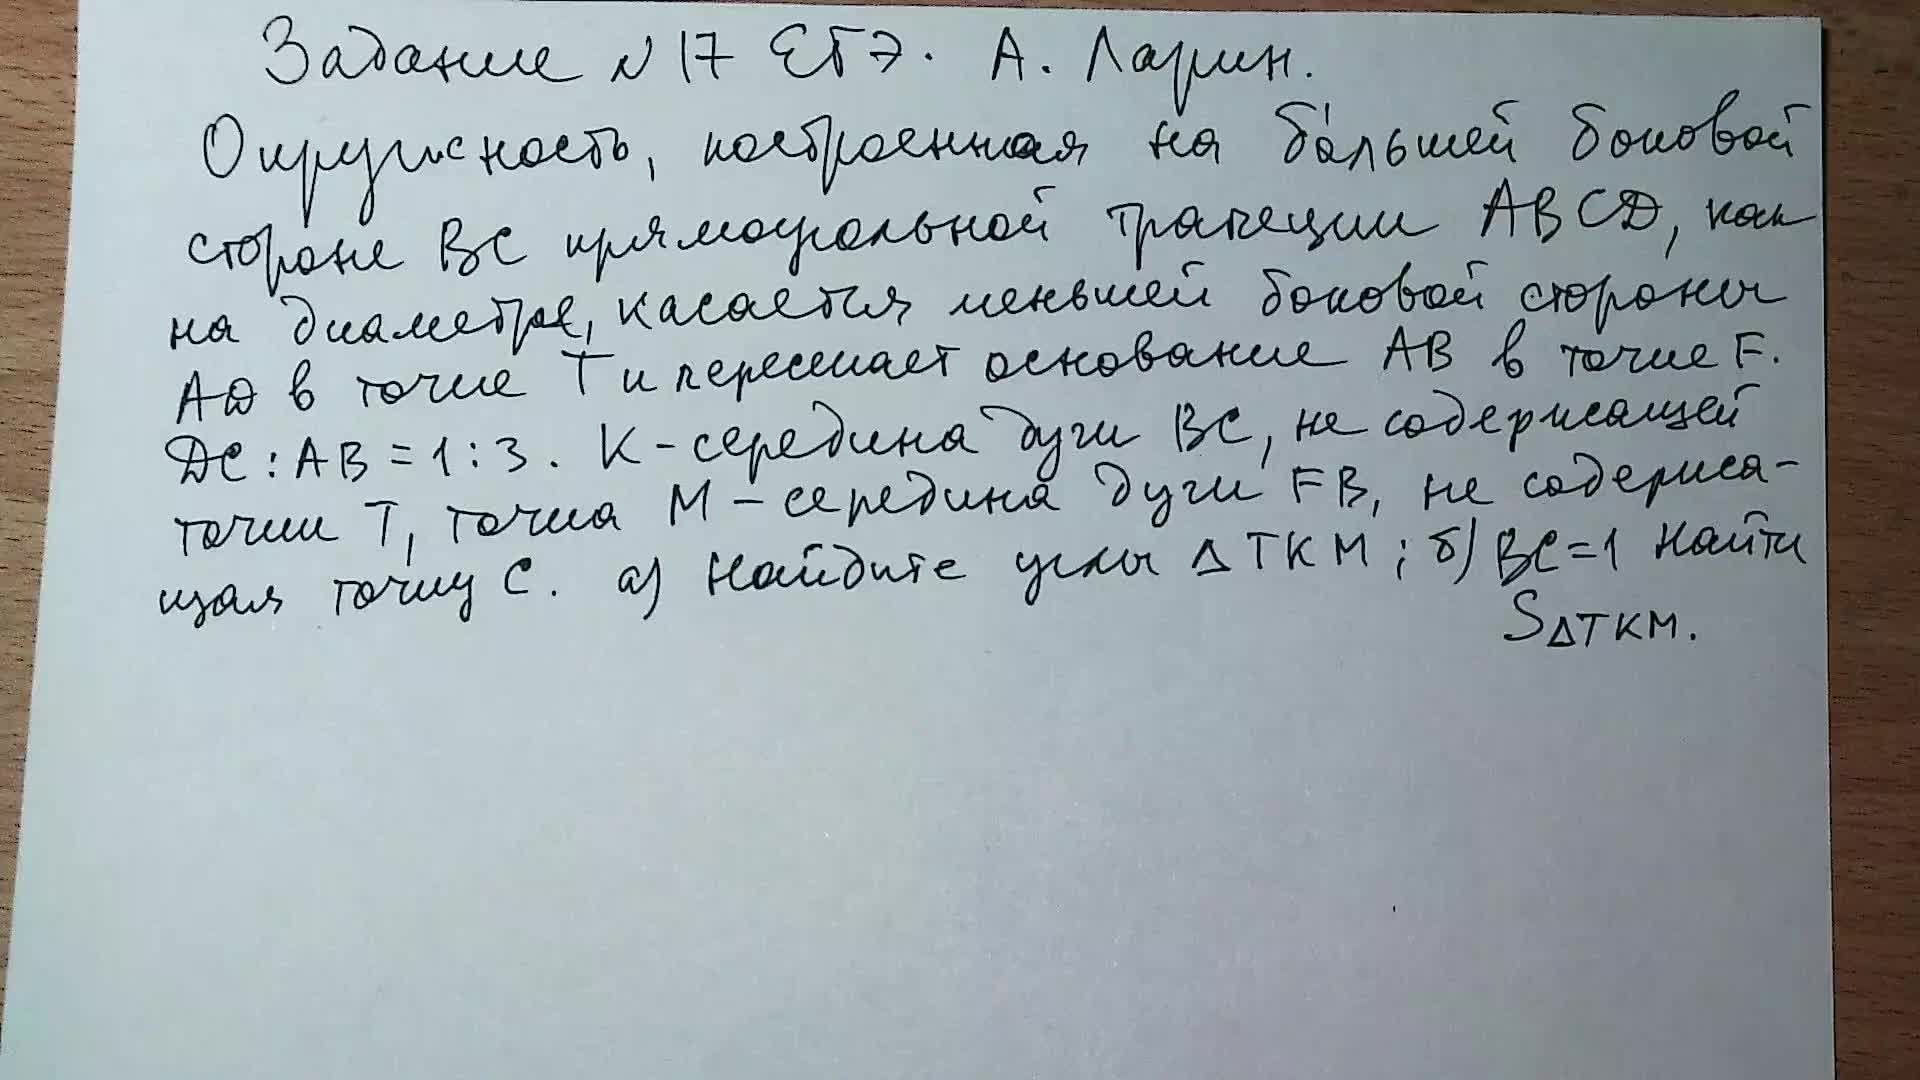 Задание №17 ЕГЭ. А. Ларин.
Окружность, построенная на бо́льшей боковой
стороне BC прямоугольной трапеции ABCD, как
на диаметре, касается меньшей боковой стороны
AD в точке T и пересекает основание AB в точке F.
DC : AB = 1 : 3. K - середина дуги BC, не содержащей
точки T, точка M - середина дуги FB, не содержа-
щая точку C. а) Найдите углы ΔTKM; б) BC=1 Найти
SΔTKM.